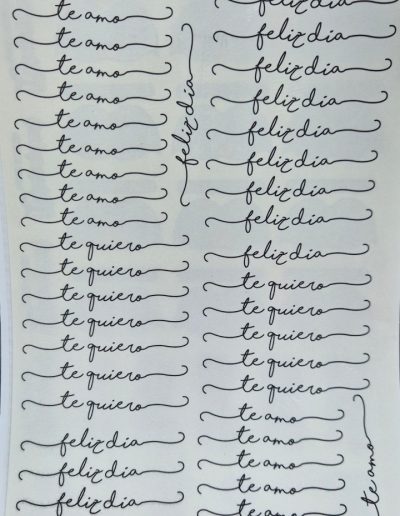 te amo
te amo
te amo
te amo
te amo
te amo
te amo
te amo
te amo
te quiero
te quiero
te quiero
te quiero
te quiero
te quiero
te quiero
feliz dia
feliz dia
feliz dia
feliz dia
feliz dia
feliz dia
feliz dia
feliz dia
feliz dia
feliz dia
feliz dia
feliz dia
feliz dia
te quiero
te quiero
te quiero
te quiero
te quiero
te amo
te amo
te amo
te amo
te amo
te amo